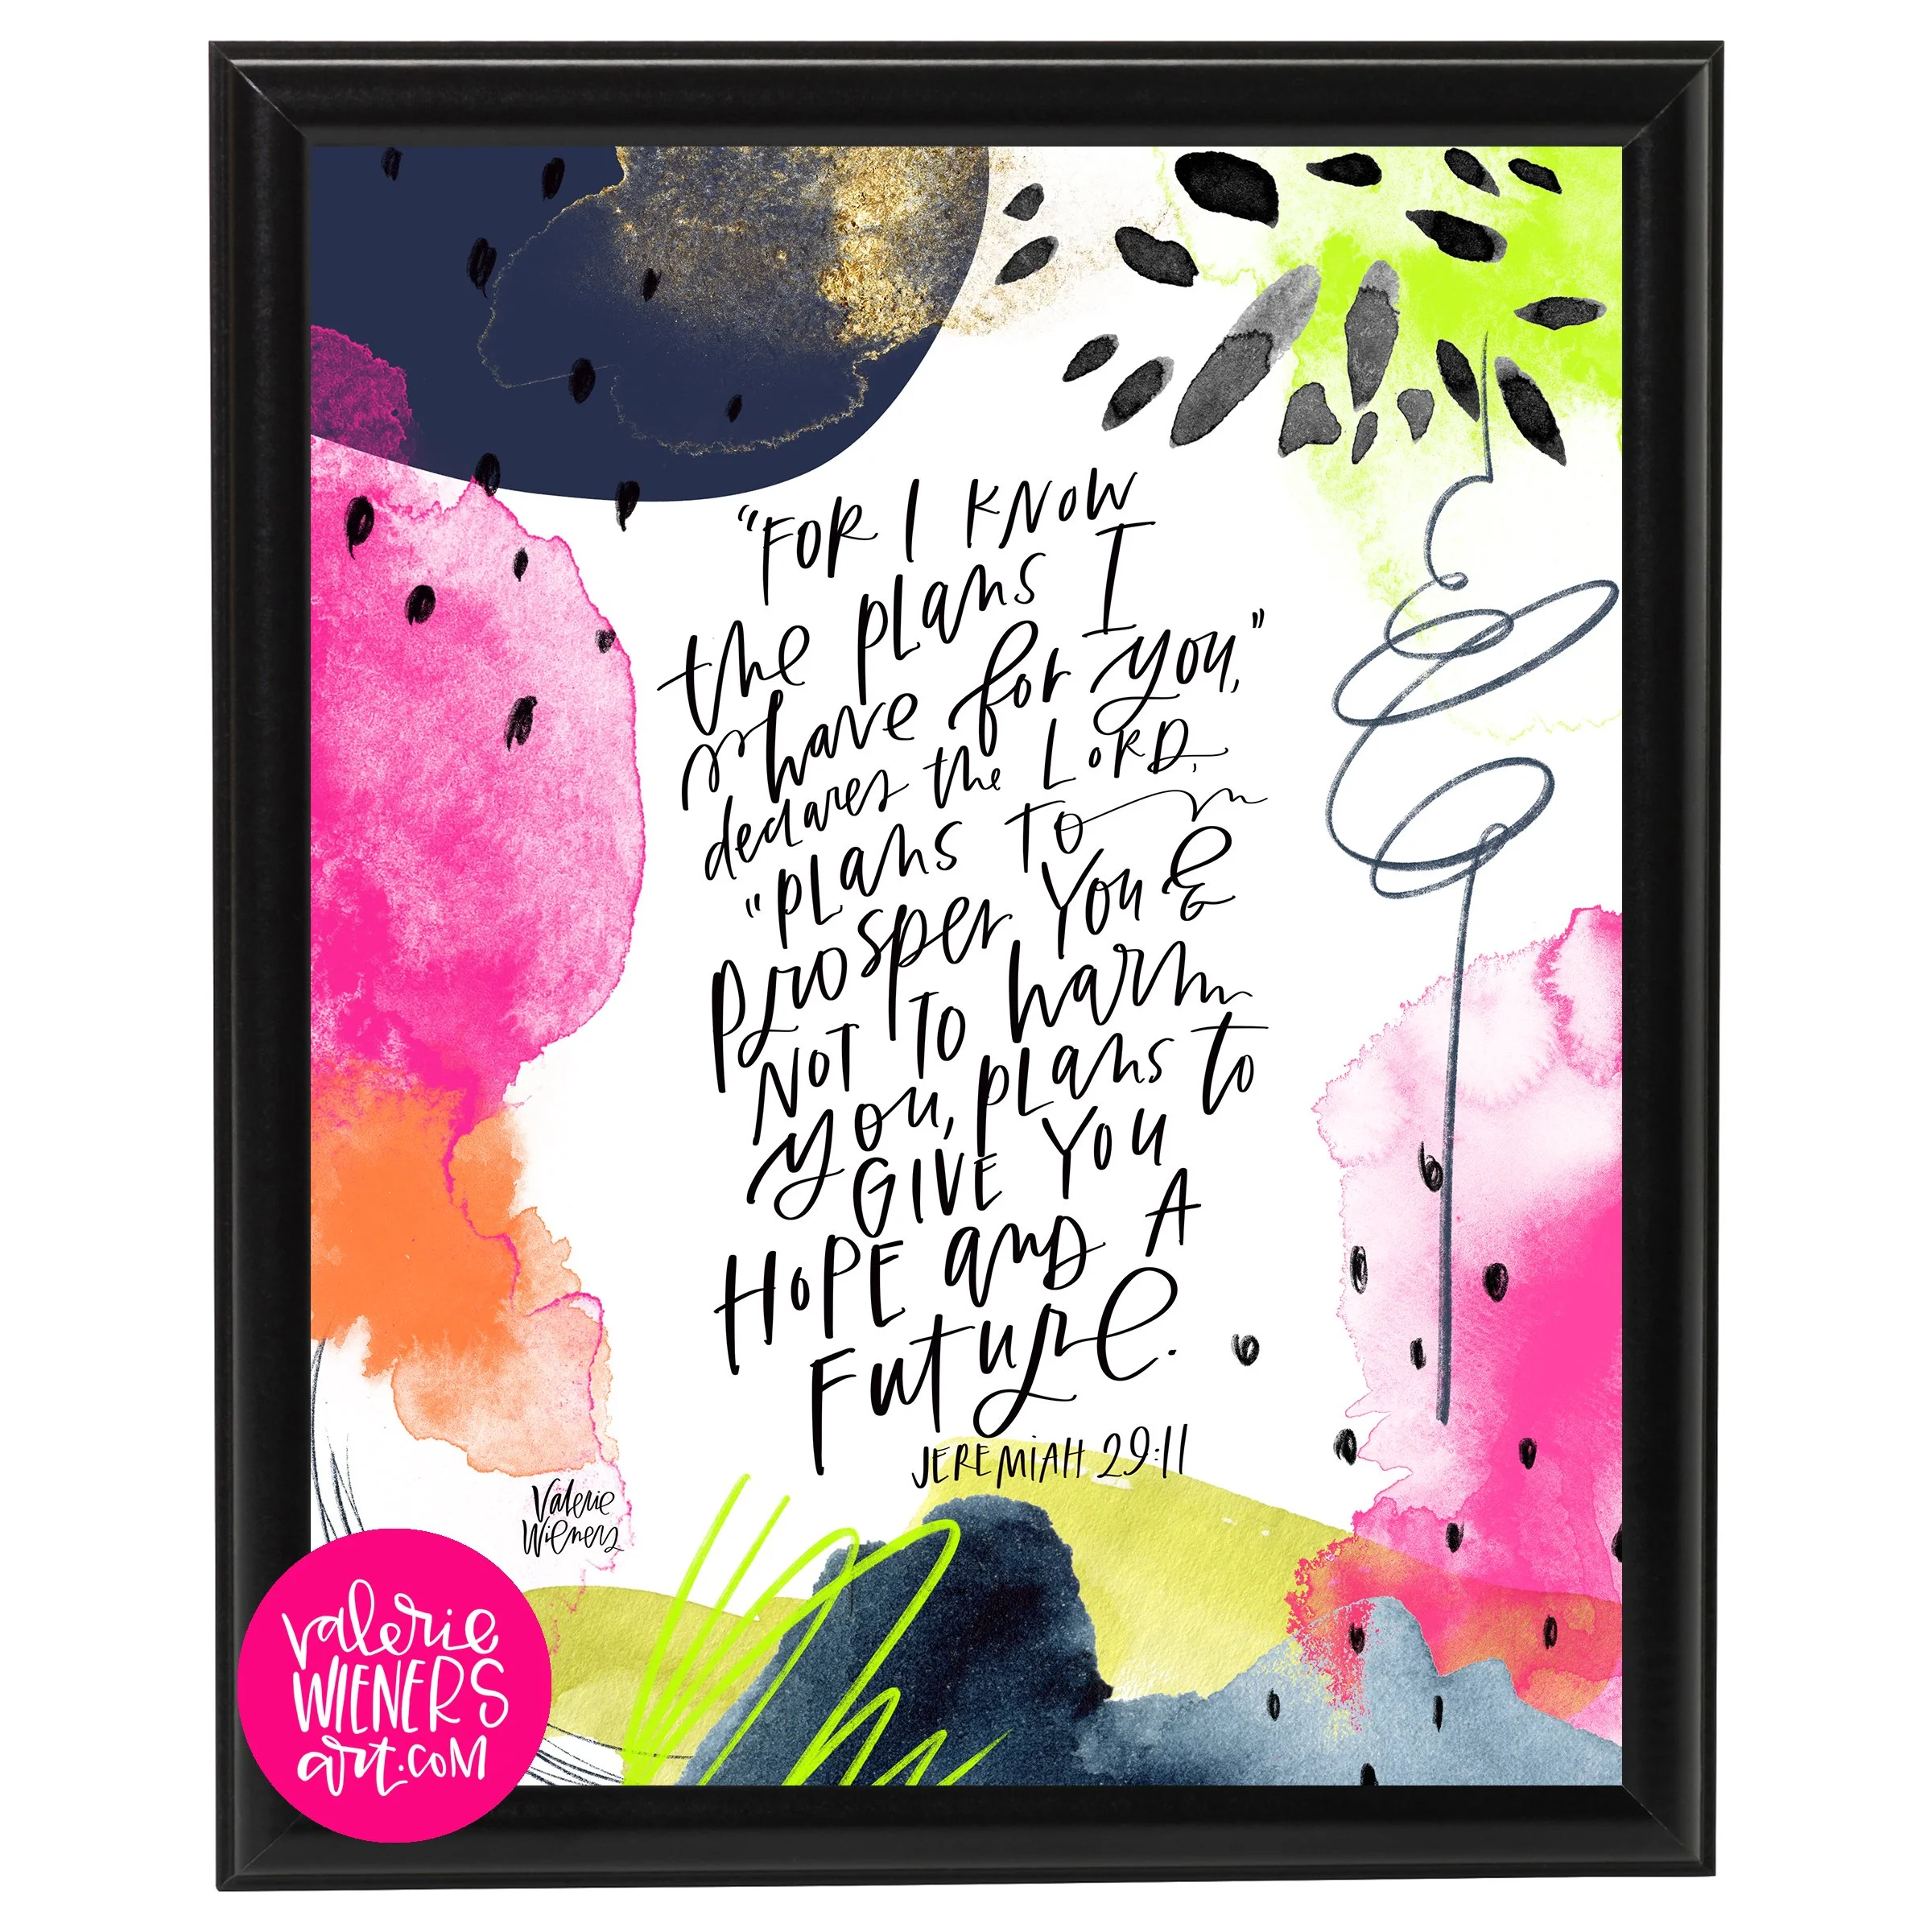 "FOR I KNOW
the plans I
have for you,"
declares the LORD,
"plans to
prosper you &
NOT TO harm
you, plans to
GIVE YOU
HOPE and A
Future.
JEREMIAH 29:11
Valerie
Wieners
valerie
WIENERS
art.com